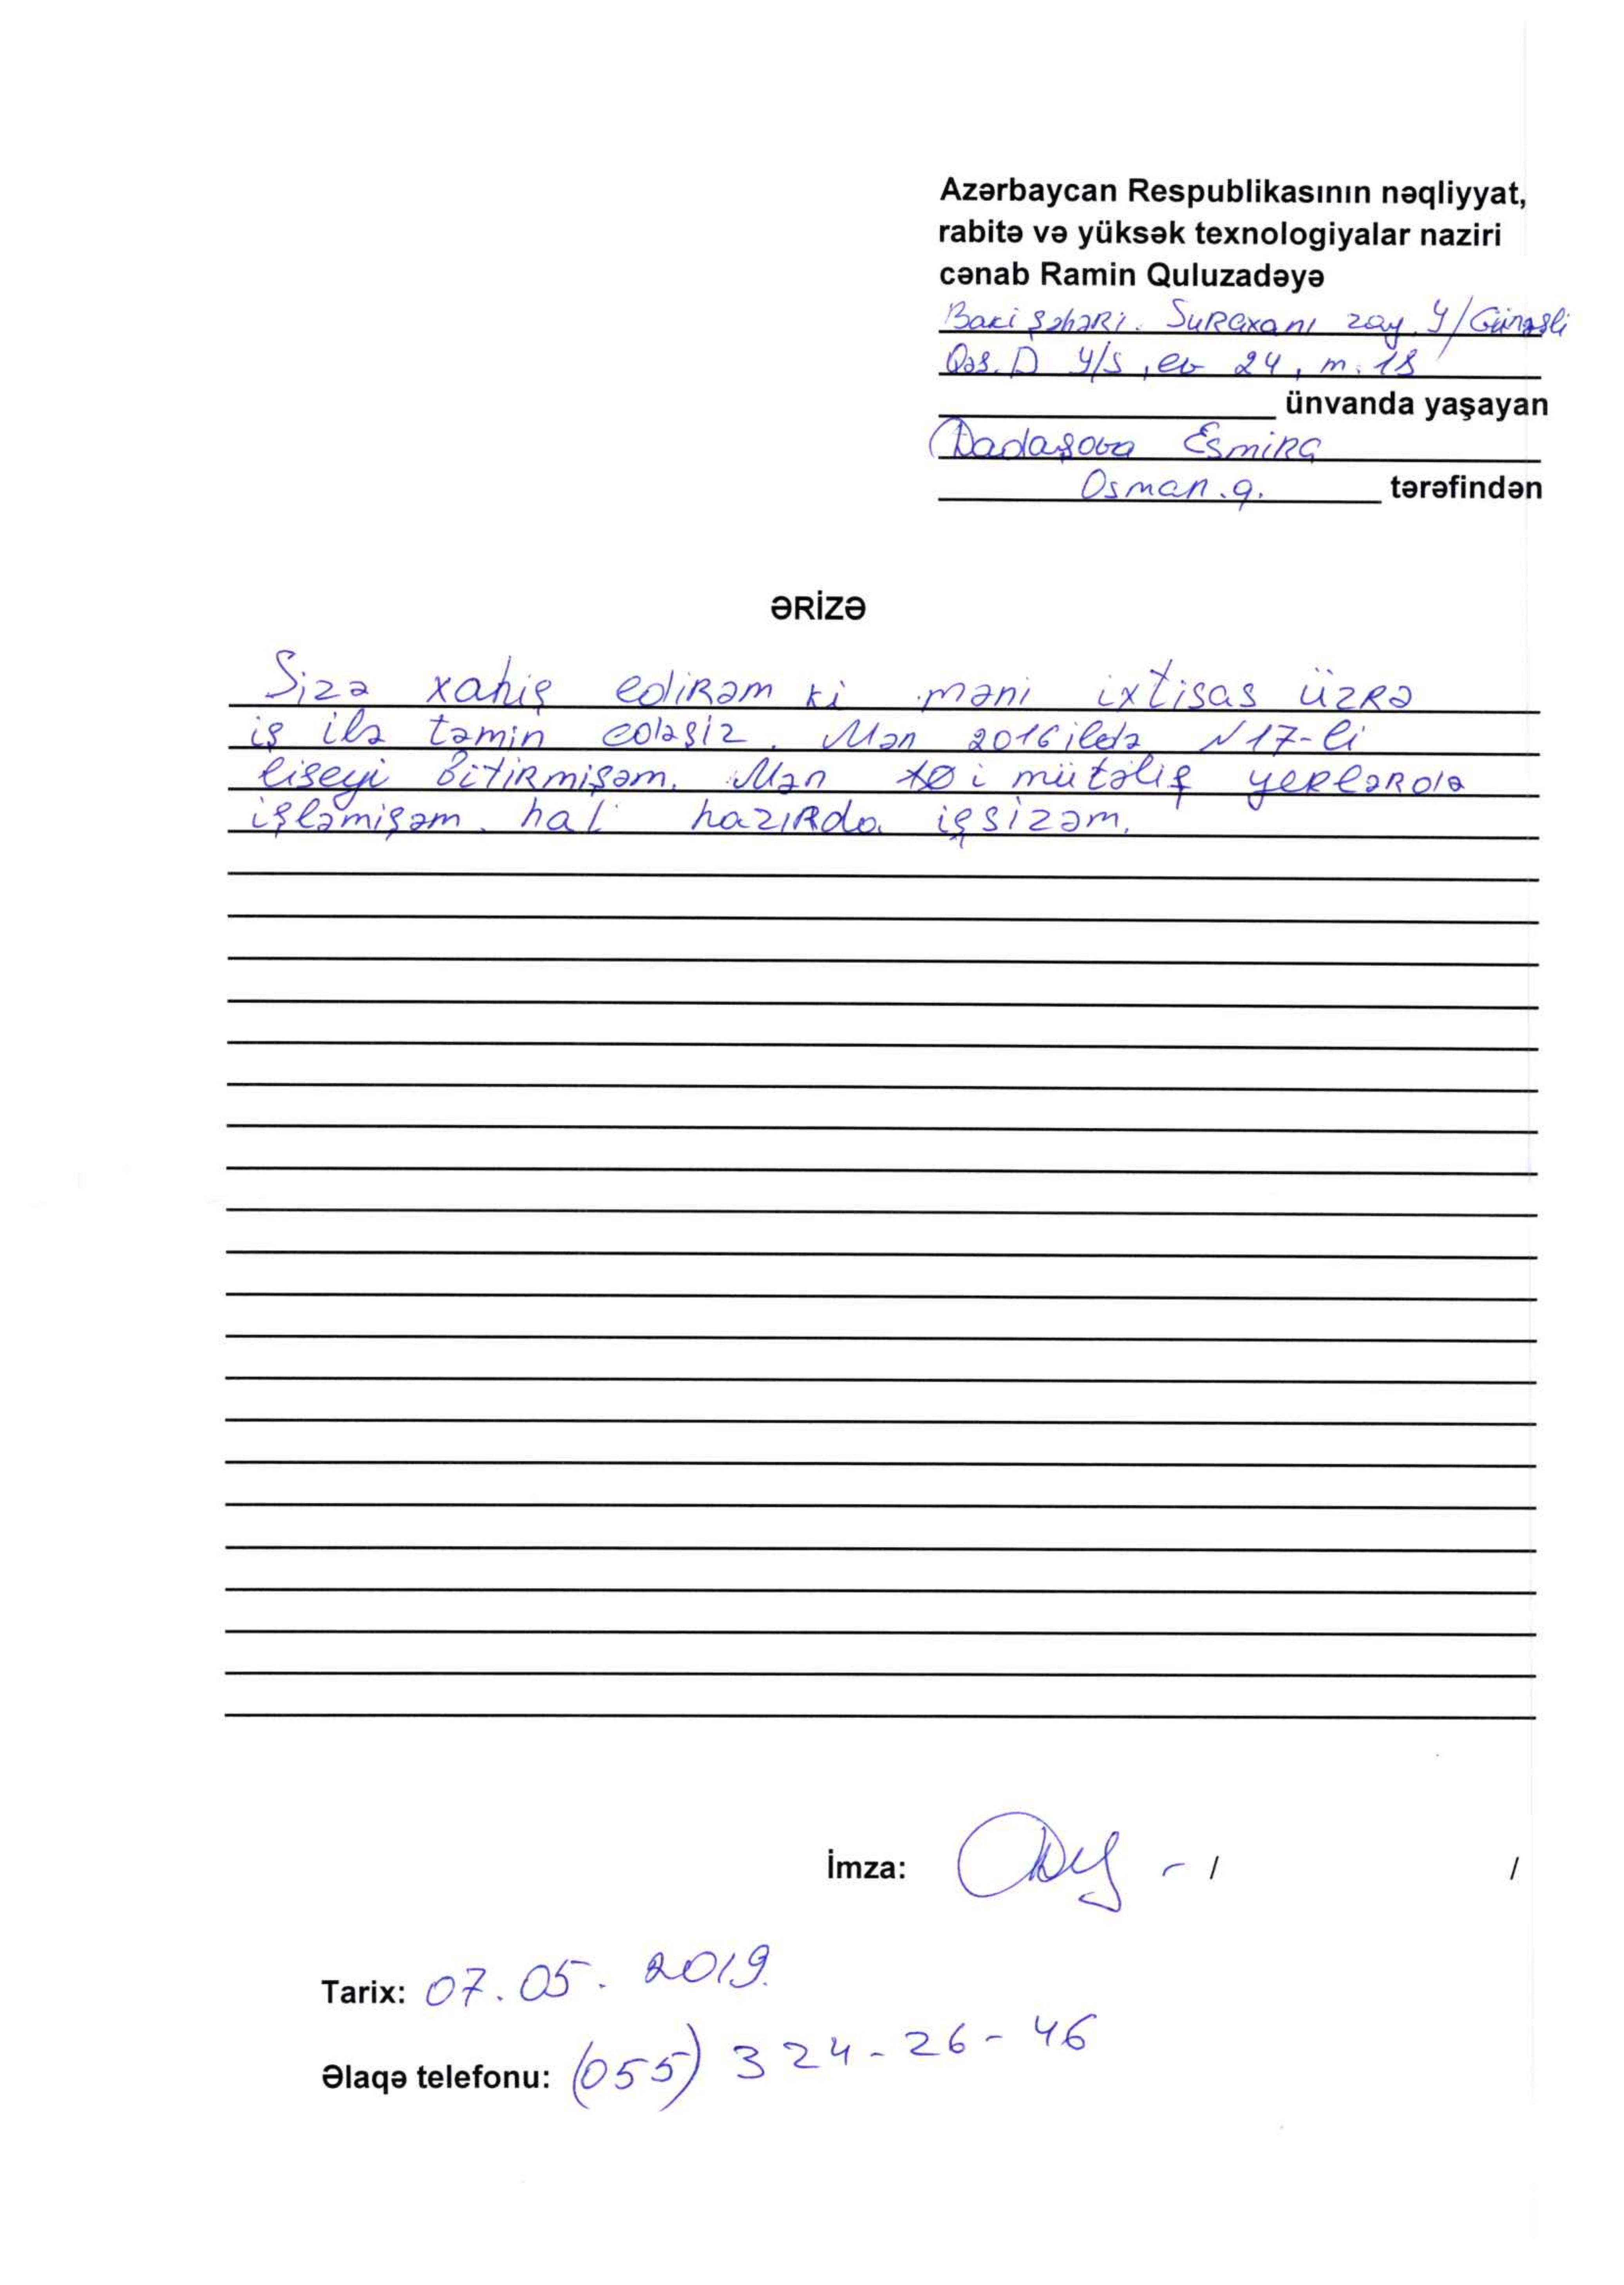 Azərbaycan Respublikasının nəqliyyat,
rabitə və yüksək texnologiyalar naziri
cənab Ramin Quluzadəyə
Baki şəhəri. Suraxanı ray. Y/Günəşli
Qəs. D y/s, ev 24, m. 18
ünvanda yaşayan
Dadaşova Esmira
Osman.q. tərəfindən
ƏRİZƏ
Sizə xahiş edirəm ki məni ixtisas üzrə
iş ilə təmin edəsiz. Mən 2016 ildə N17-li
liseyi bitirmişəm. Mən mütəlif yerlərdə
işləmişəm. hal hazırda işsizəm.
İmza: / /
Tarix: 07.05.2019.
Əlaqə telefonu: (055) 324-26-46